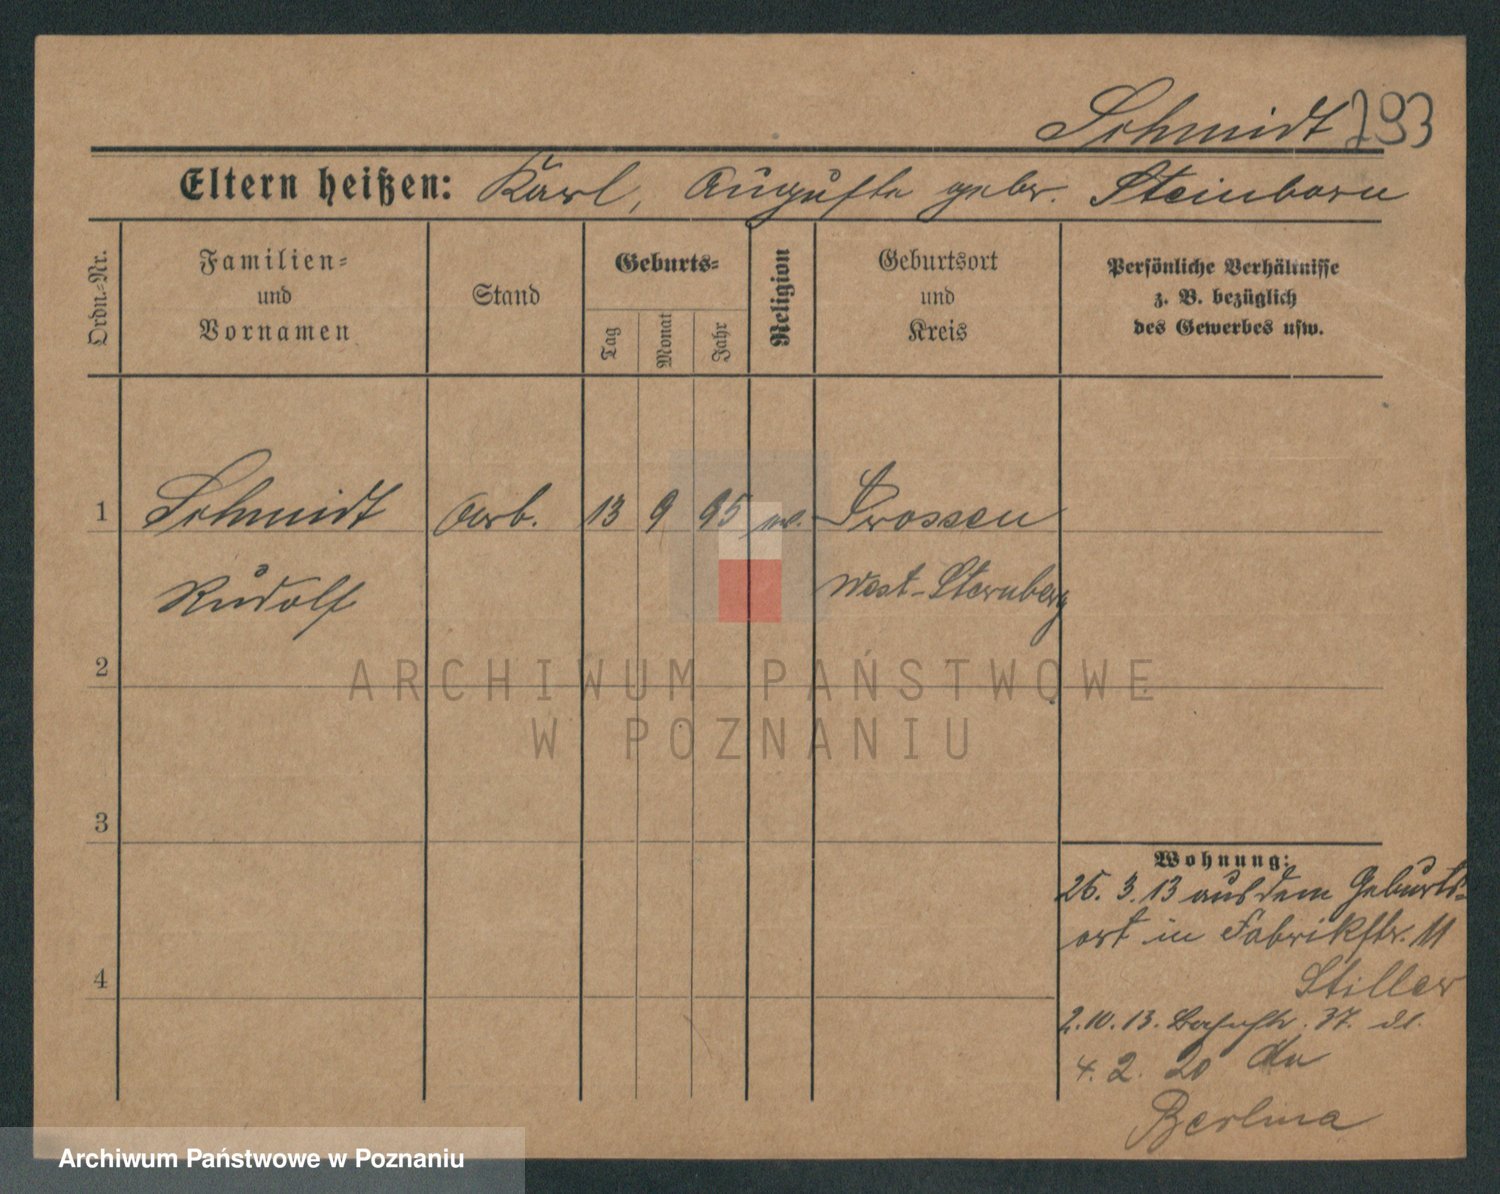 Schmidt 793
Eltern heißen: Karl, Auguste gebr. Steinborn
Ordn.-Nr.
Familien-
und
Vornamen
Stand
Geburts-
Tag
Monat
Jahr
Religion
Geburtsort
und
Kreis
Persönliche Verhältnisse
z. B. bezüglich
des Gewerbes usw.
1 Schmidt Arb. 13 9 95 ev. Drossen
Rudolf West-Sternberg
2
3
4
Wohnung:
25. 3. 13 aus dem Geburts-
ort in Fabrikstr. 11
Stiller
2.10.13. 37.
4. 2. 20 do
Berlina
ARCHIWUM PAŃSTWOWE
W POZNANIU
Archiwum Państwowe w Poznaniu